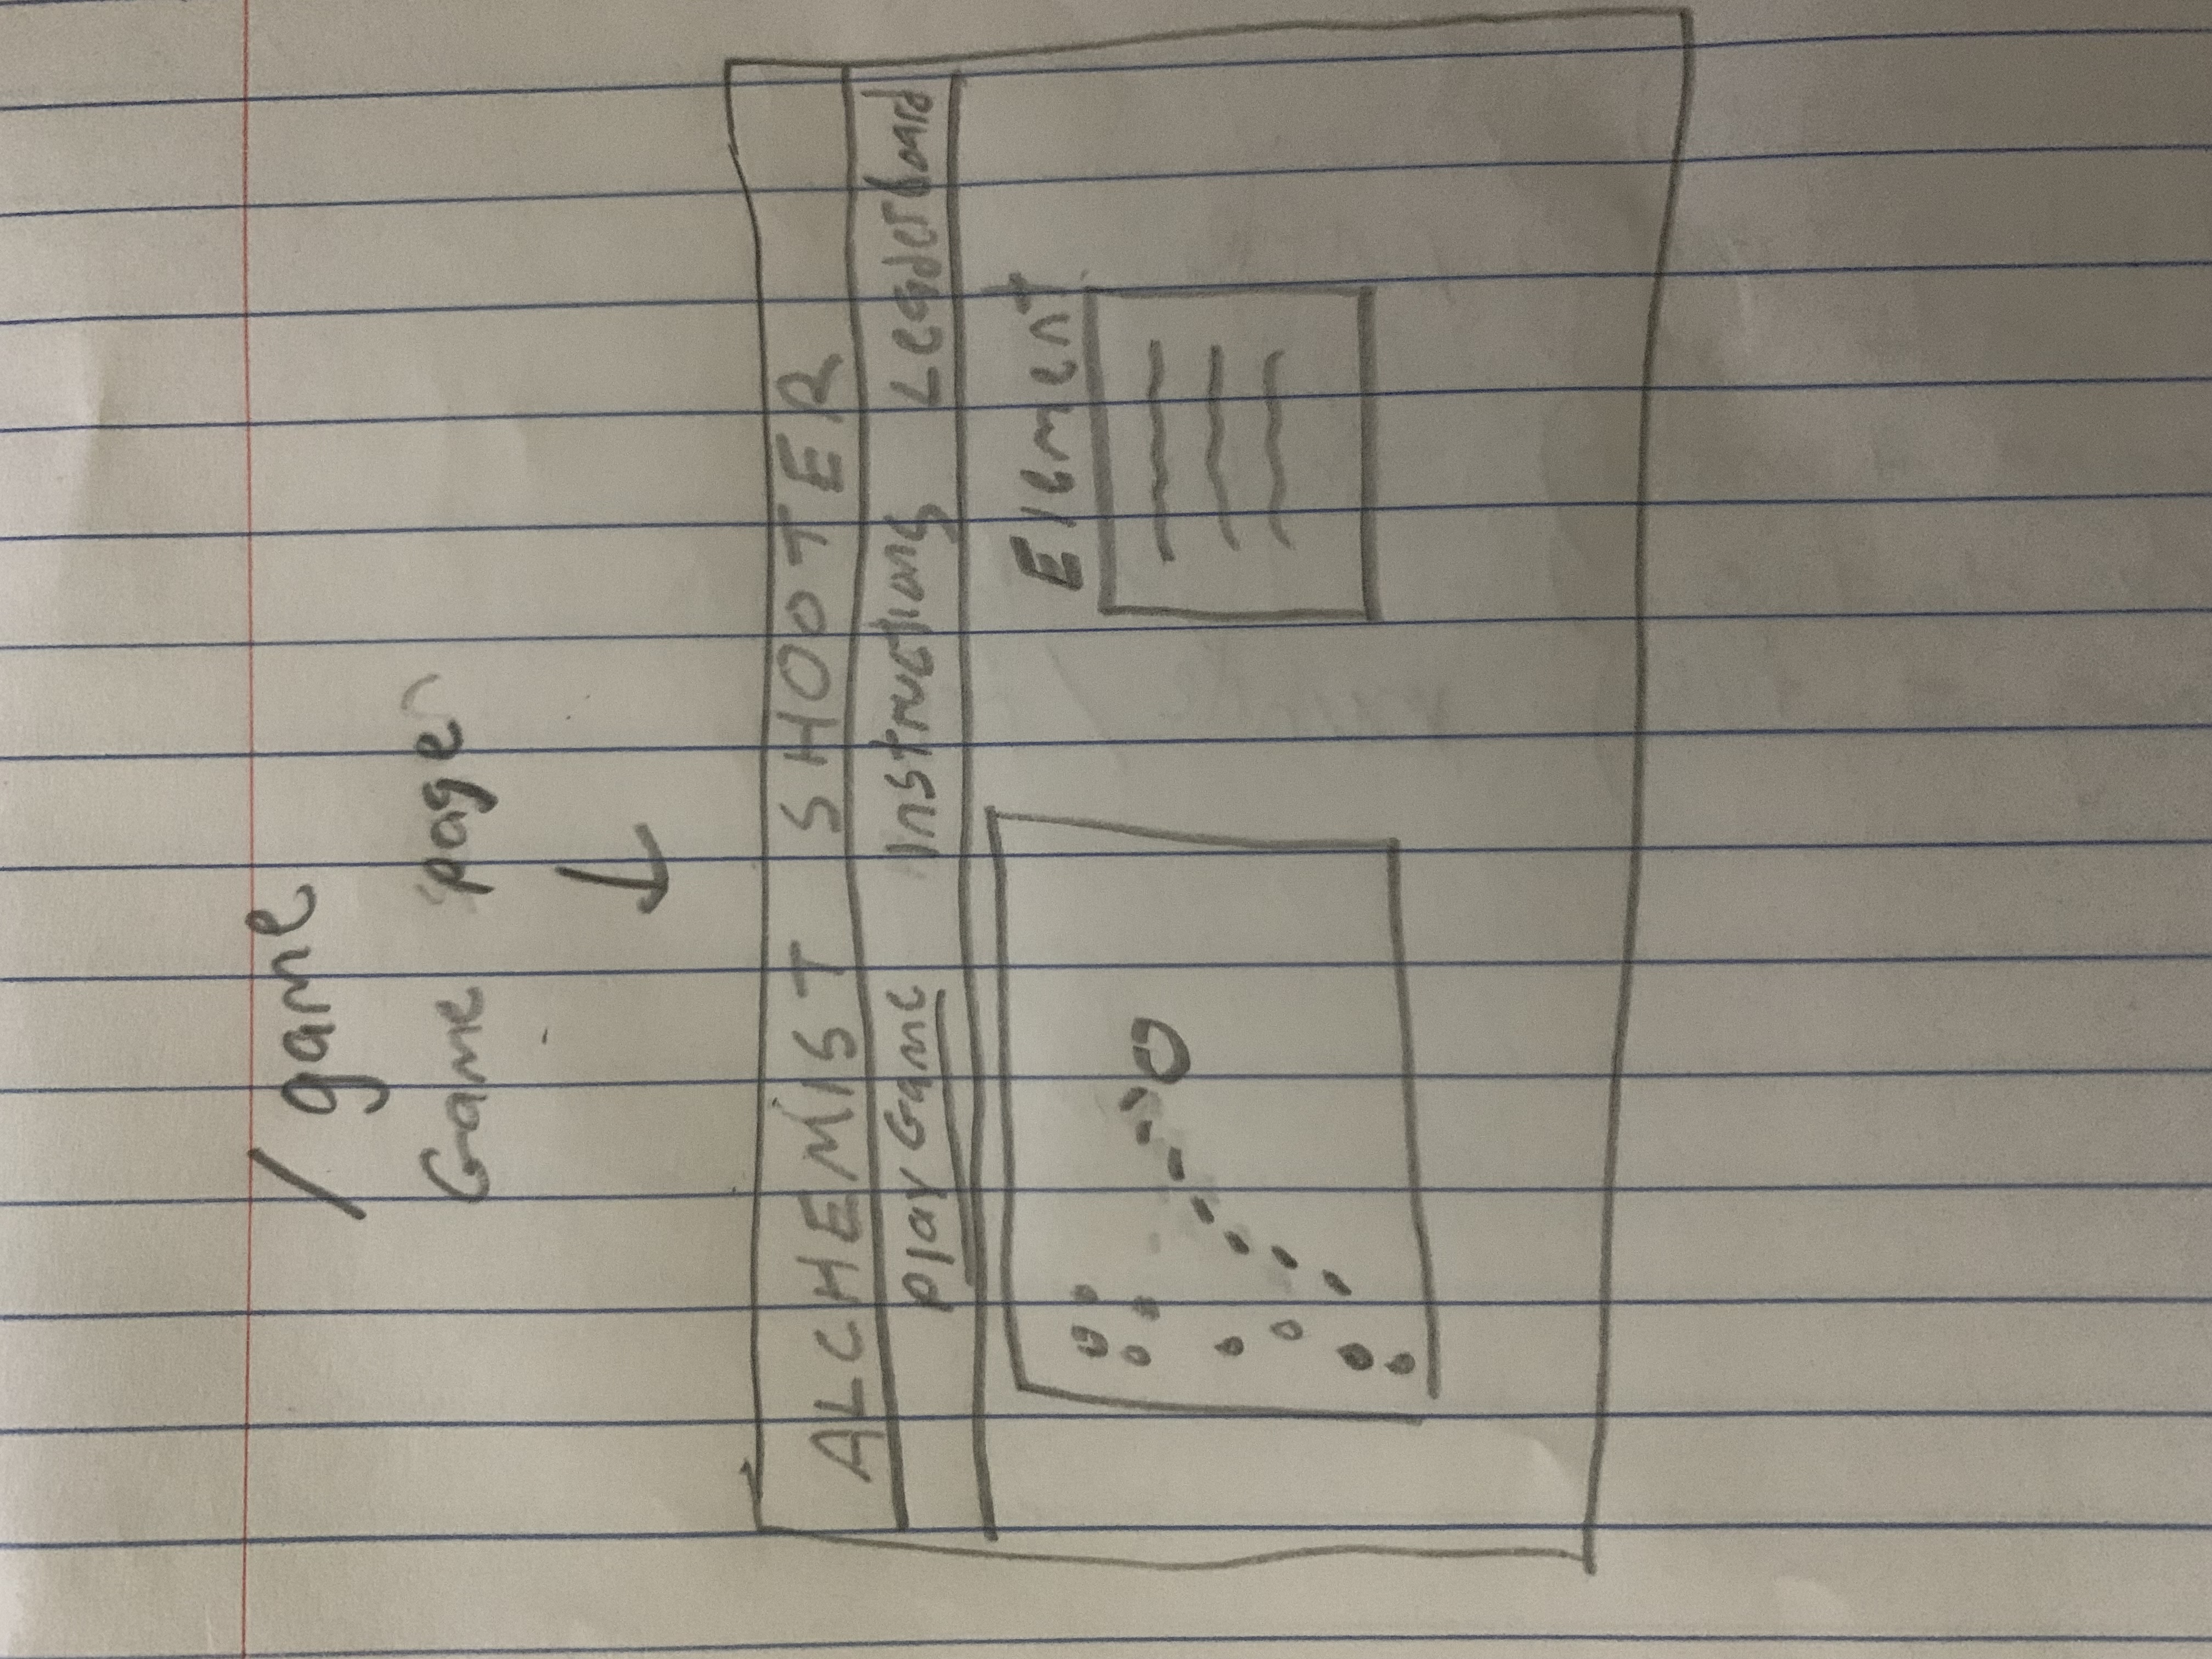 /game
Game page
ALCHEMIST SHOOTER
Play Game Instructions Leaderboard
Element